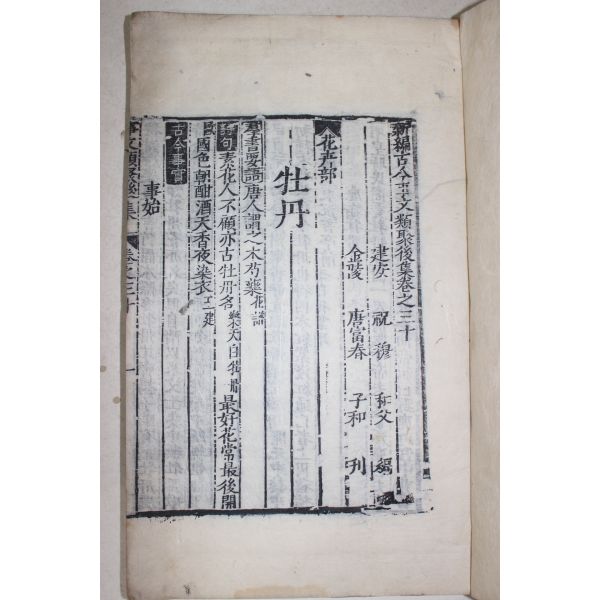 新編古今事文類聚後集卷之三十
建安 祝穆 和父 編
金陵 唐富春 子和 刊
花卉部
牡丹
羣書要語 唐人謂之木芍藥 花譜
詩句 素花人不顧亦占牡丹名 樂天白牡丹 最好花常最後開
國色朝酣酒天香夜染衣
古今事實
事始
事文類聚後集 卷之三十 一